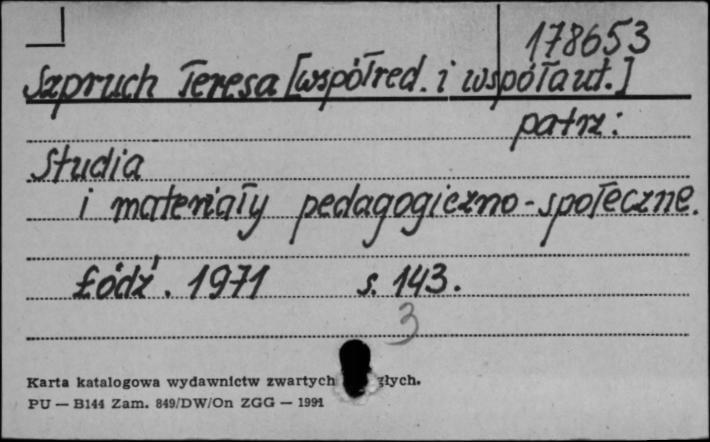 178653
Szpruch Teresa [współred. i współaut.]
patrz:
Studia
i materiały pedagogiczno-społeczne.
Łódź. 1971 s. 143.
3
Karta katalogowa wydawnictw zwartych
PU — B144 Zam. 849/DW/On ZGG — 1991